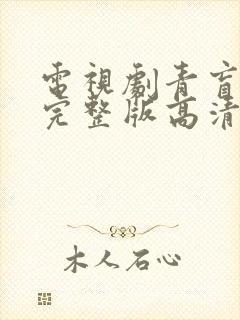 電視劇青盲
完整版高清
木人石心